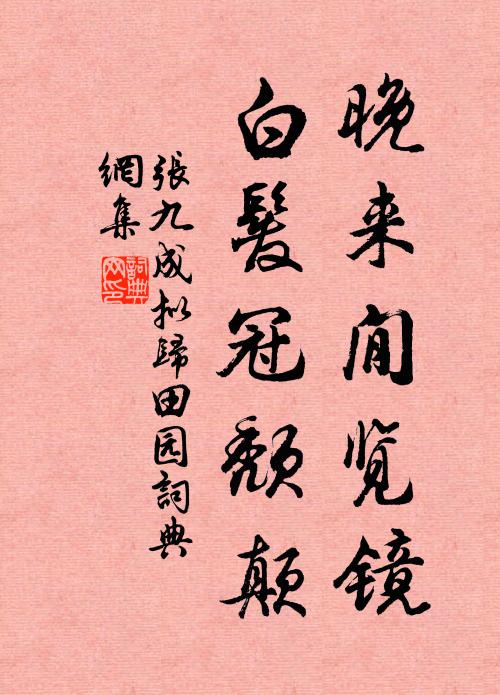 晚来闲览镜
白髮冠颓颠
張九成拟歸田园詞典
網集
詞典网印